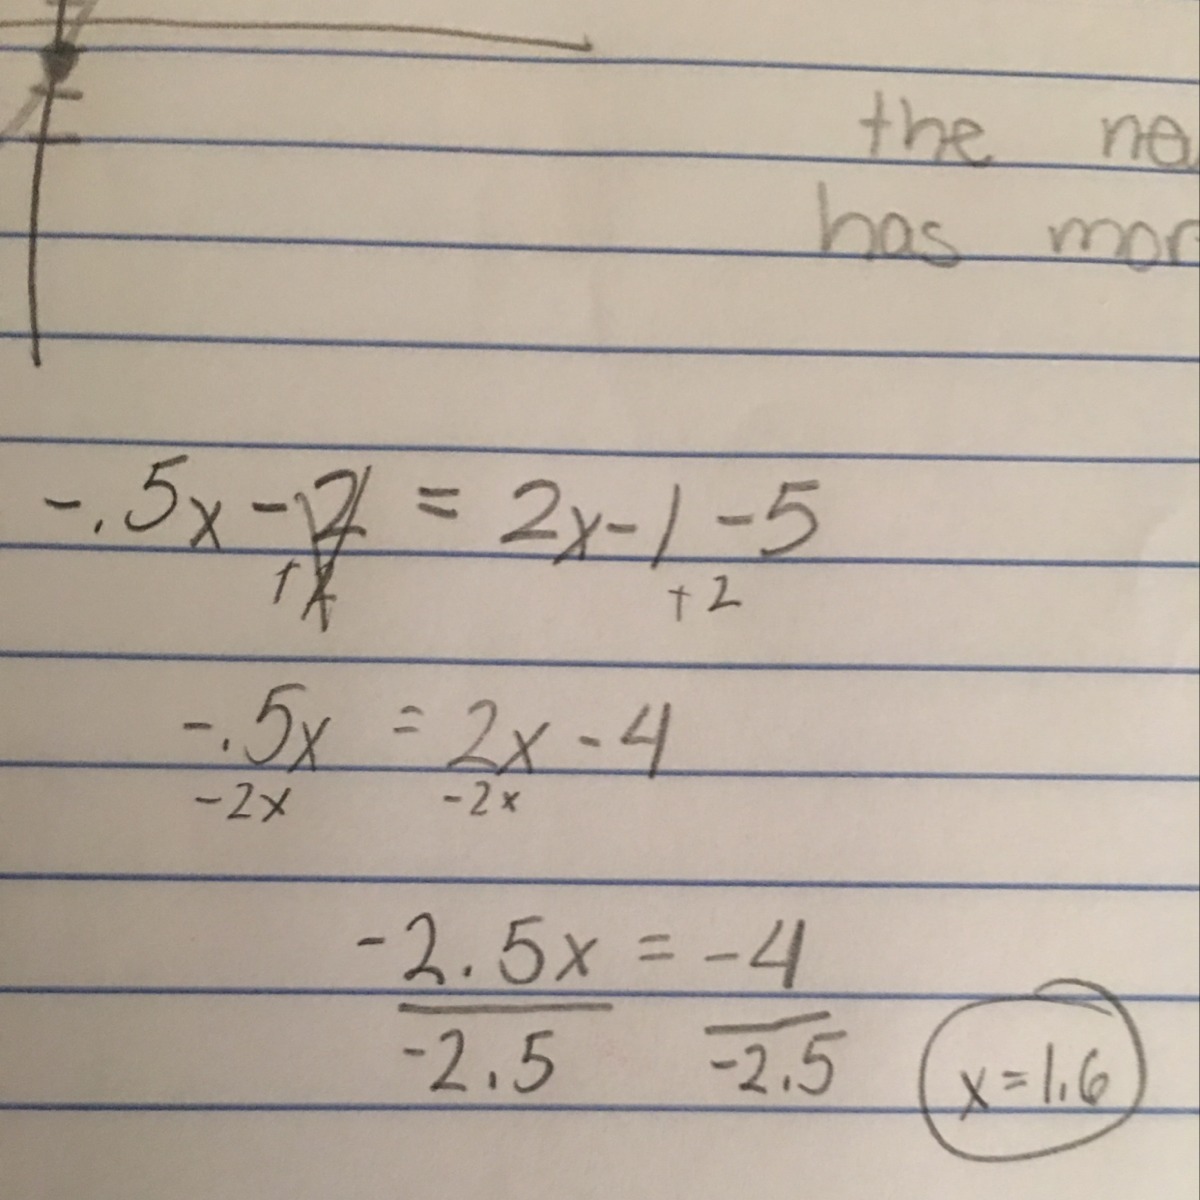 the
has
-.5x - 2 = 2x - 1 - 5
+2 +2
-.5x = 2x - 4
-2x -2x
-2.5x = -4
-2.5 -2.5
x = 1.6